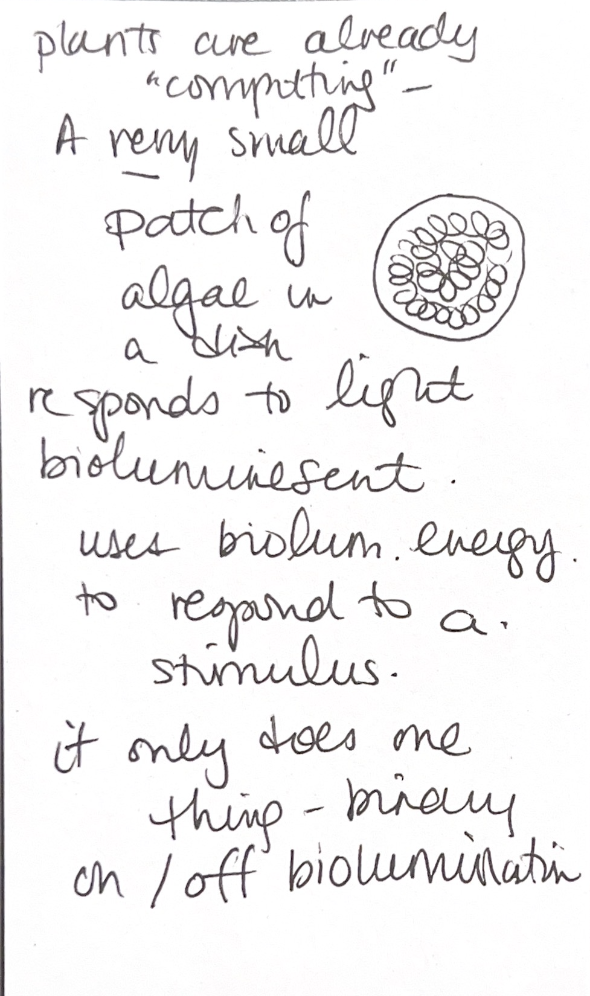 plants are already
"computing" –
A very small
patch of
algae in
a dish
responds to light
bioluminesent.
uses biolum. energy.
to respond to a.
stimulus.
it only does one
thing – binary
on / off biolumination